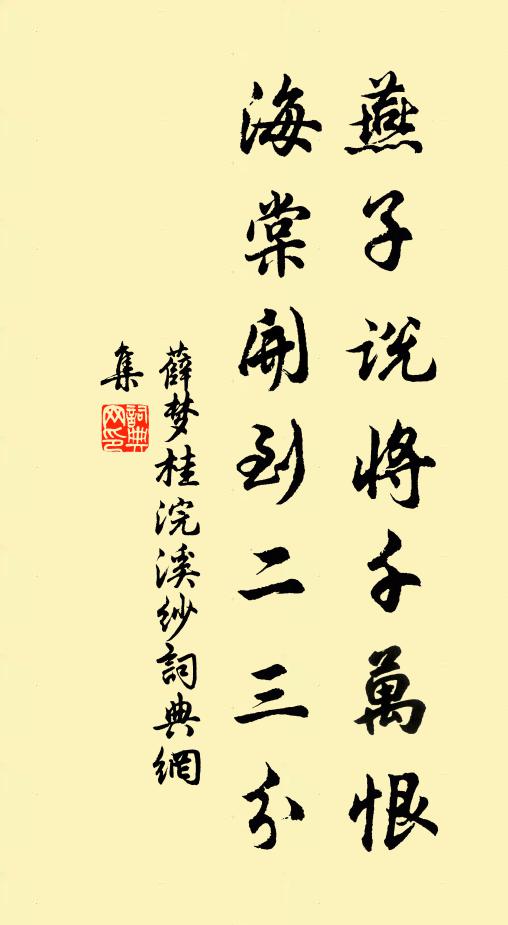 燕子说将千萬恨
海棠開到二三分
薛梦桂浣溪纱詞典網
集
詞典
网印